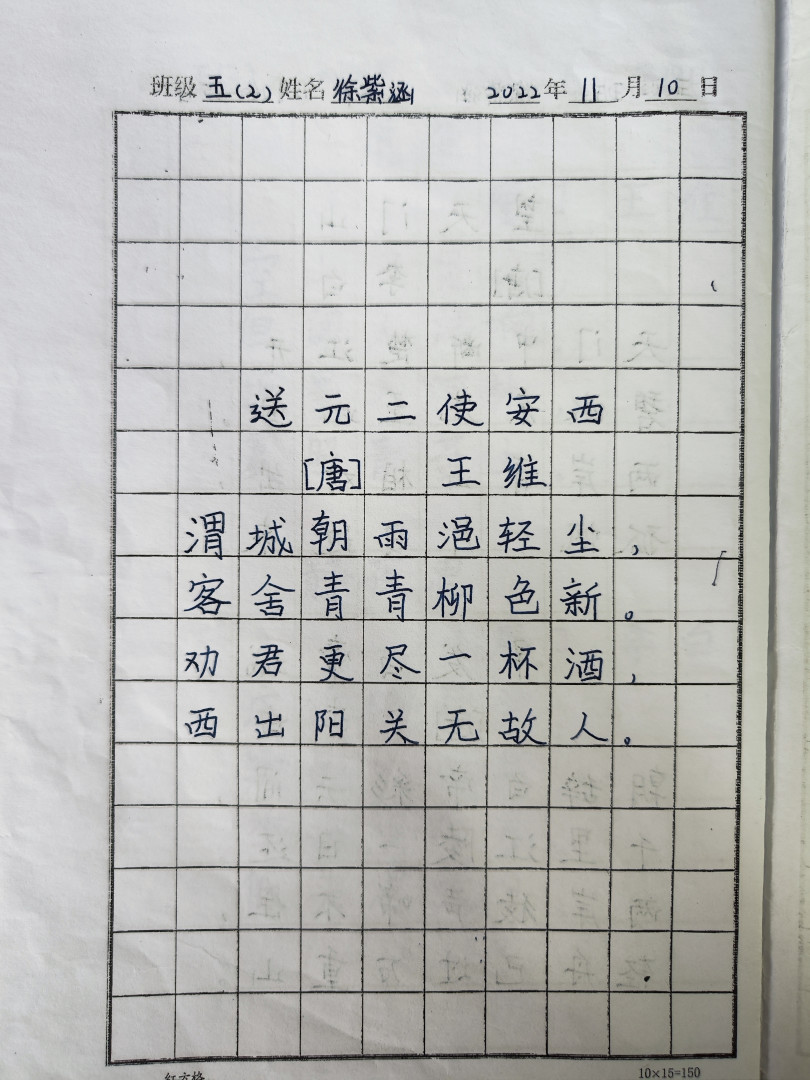 班级 五(2) 姓名 徐紫涵 2022年 11 月 10 日
送元二使安西
[唐] 王维
渭城朝雨浥轻尘,
客舍青青柳色新。
劝君更尽一杯酒,
西出阳关无故人。
10×15=150